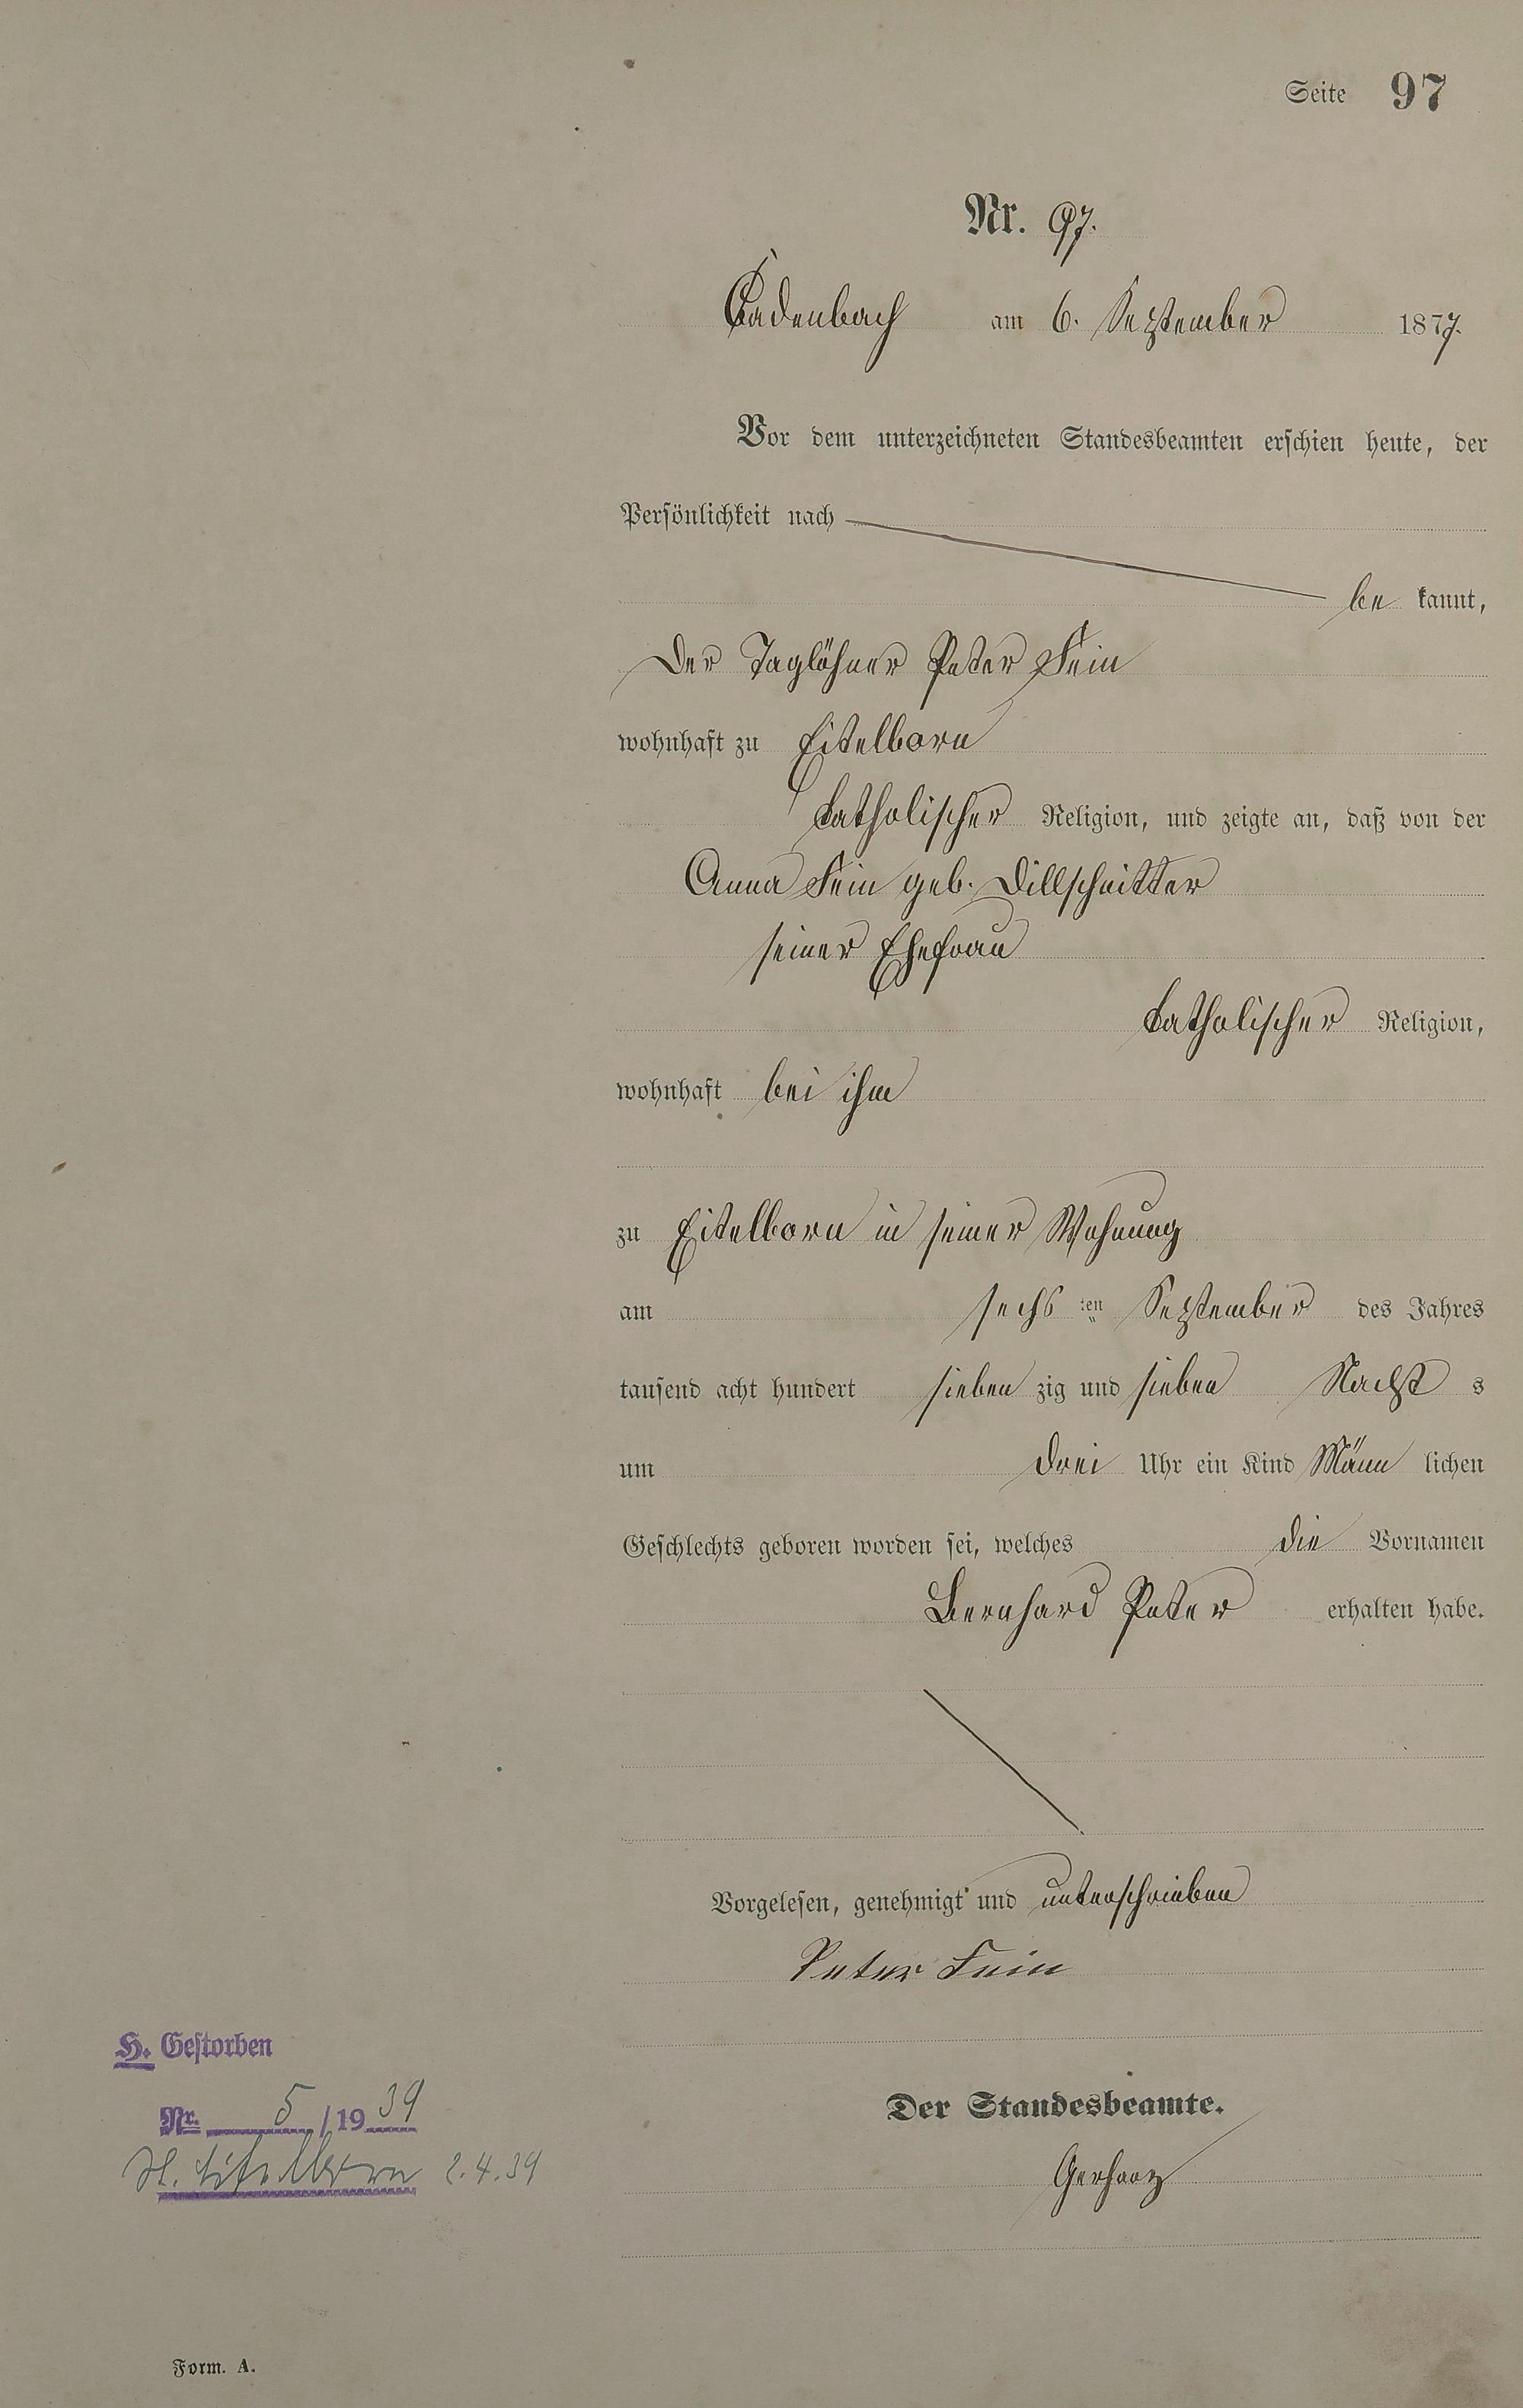 Seite 97
Nr. 97.
Cadenbach am 6. September 1877.
Vor dem unterzeichneten Standesbeamten erschien heute, der
Persönlichkeit nach
be kannt,
Der Taglöhner Peter Fein
wohnhaft zu Eitelborn
katholischer Religion, und zeigte an, daß von der
Anna Fein geb. Dillschnitter
seiner Ehefrau
katholischer Religion,
wohnhaft bei ihm
zu Eitelborn in seiner Wohnung
am sechs ten September des Jahres
tausend acht hundert sieben zig und sieben Nacht s
um drei Uhr ein Kind Männ lichen
Geschlechts geboren worden sei, welches die Vornamen
Bernhard Peter erhalten habe.
Vorgelesen, genehmigt und unterschrieben
Peter Fein
Der Standesbeamte.
Gerharz
H. Gestorben
Nr. 5 /19 39
Eitelborn 2.4.39
Form. A.